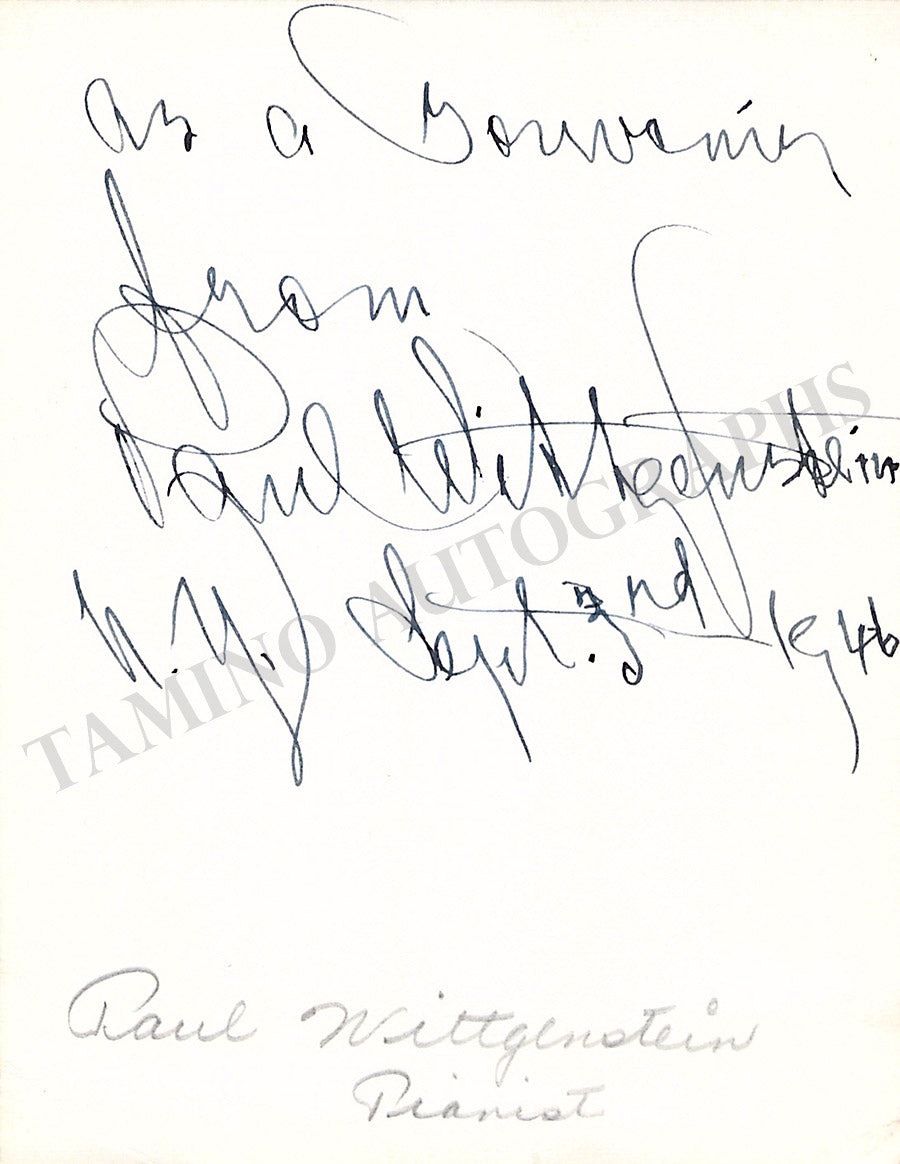 as a Souvenir
from
Paul Wittgenstein
N.Y. Sept. 3rd 1946
TAMINO AUTOGRAPHS
Paul Wittgenstein
Pianist